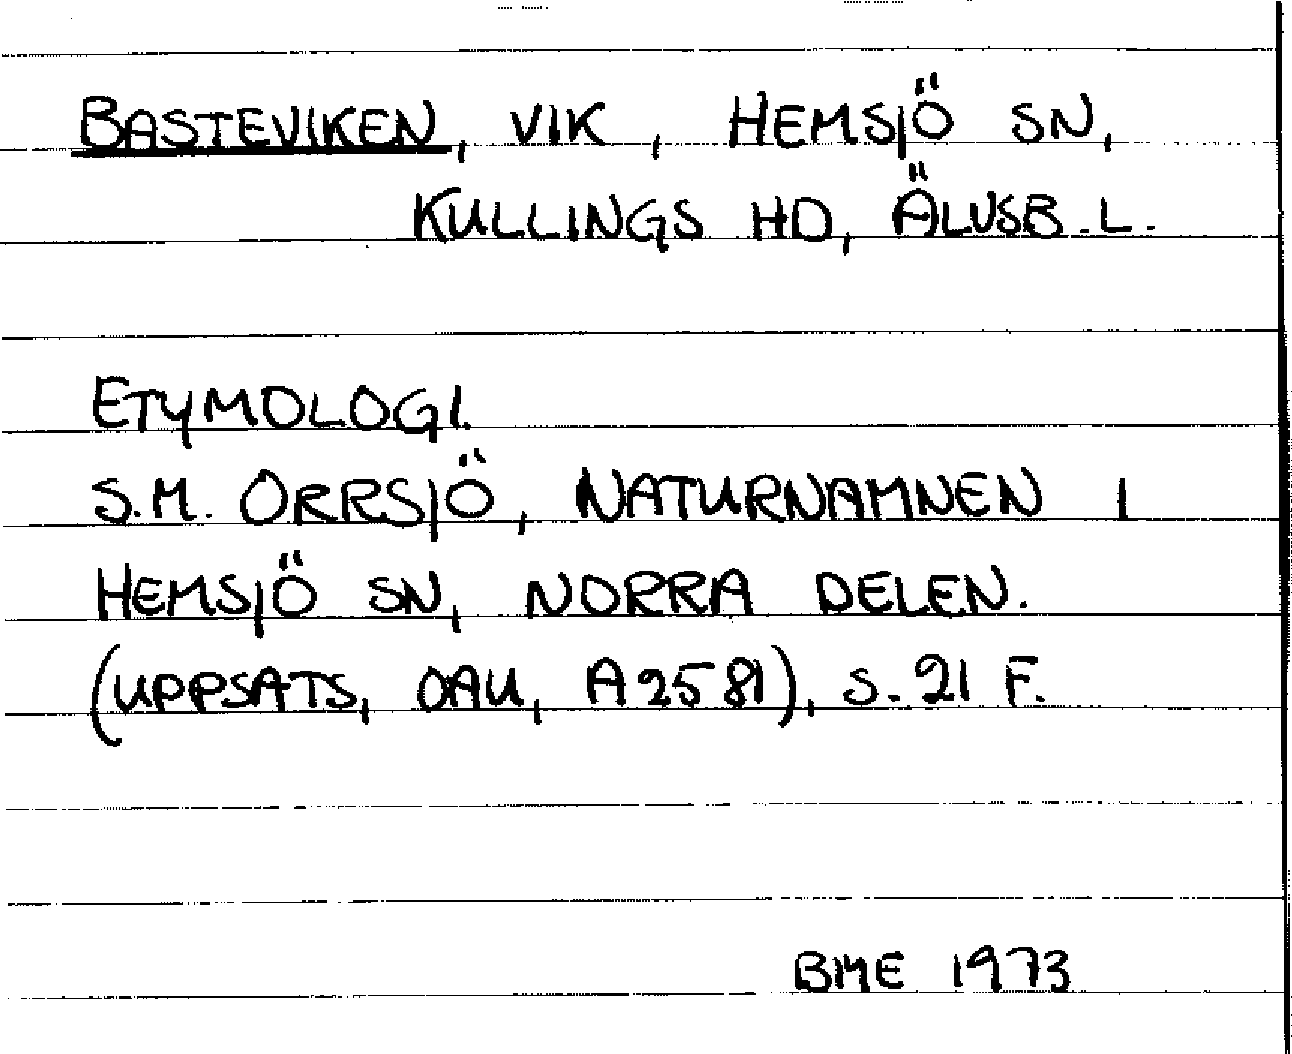 BASTEVIKEN, VIK, HEMSJÖ SN,
KULLINGS HD, ÄLVSB.L.
ETYMOLOGI.
S.M. ORRSJÖ, NATURNAMNEN I
HEMSJÖ SN, NORRA DELEN.
(UPPSATS, OAU, A2581), S. 21 F.
BME 1973